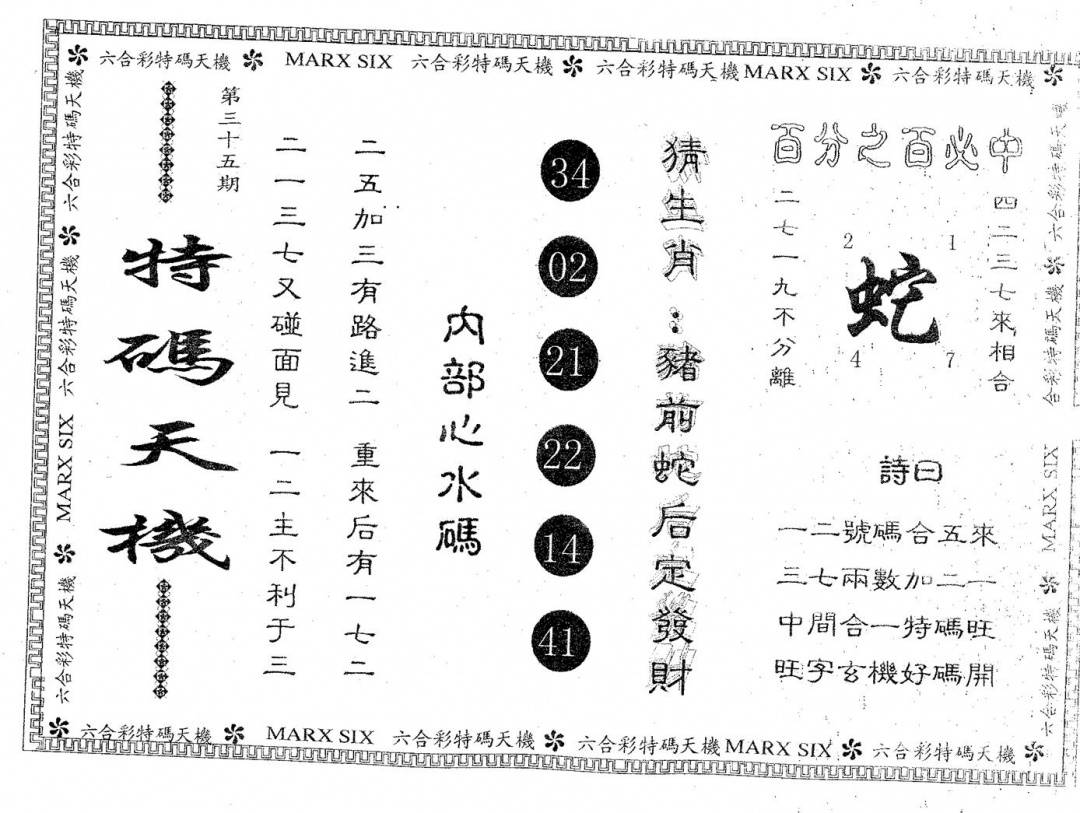 六合彩特碼天機 MARX SIX 六合彩特碼天機 六合彩特碼天機 MARX SIX 六合彩特碼天機
六合彩特碼天機 六合彩特碼天機 MARX SIX 六合彩特碼天機
第三十五期
特碼天機
二一三七又碰面見 一二主不利于三
二五加三有路進二 重來后有一七二
內部心水碼
34
02
21
22
14
41
猜生肖：豬前蛇后定發財
百分之百必中
二七一九不分離
2
1
蛇
4
7
四二三七來相合
詩曰
一二號碼合五來
三七兩數加二一
中間合一特碼旺
旺字玄機好碼開
六合彩特碼天機
合彩特碼天機 MARX SIX 六合彩特碼天機
六合彩特碼天機 MARX SIX 六合彩特碼天機 六合彩特碼天機 MARX SIX 六合彩特碼天機